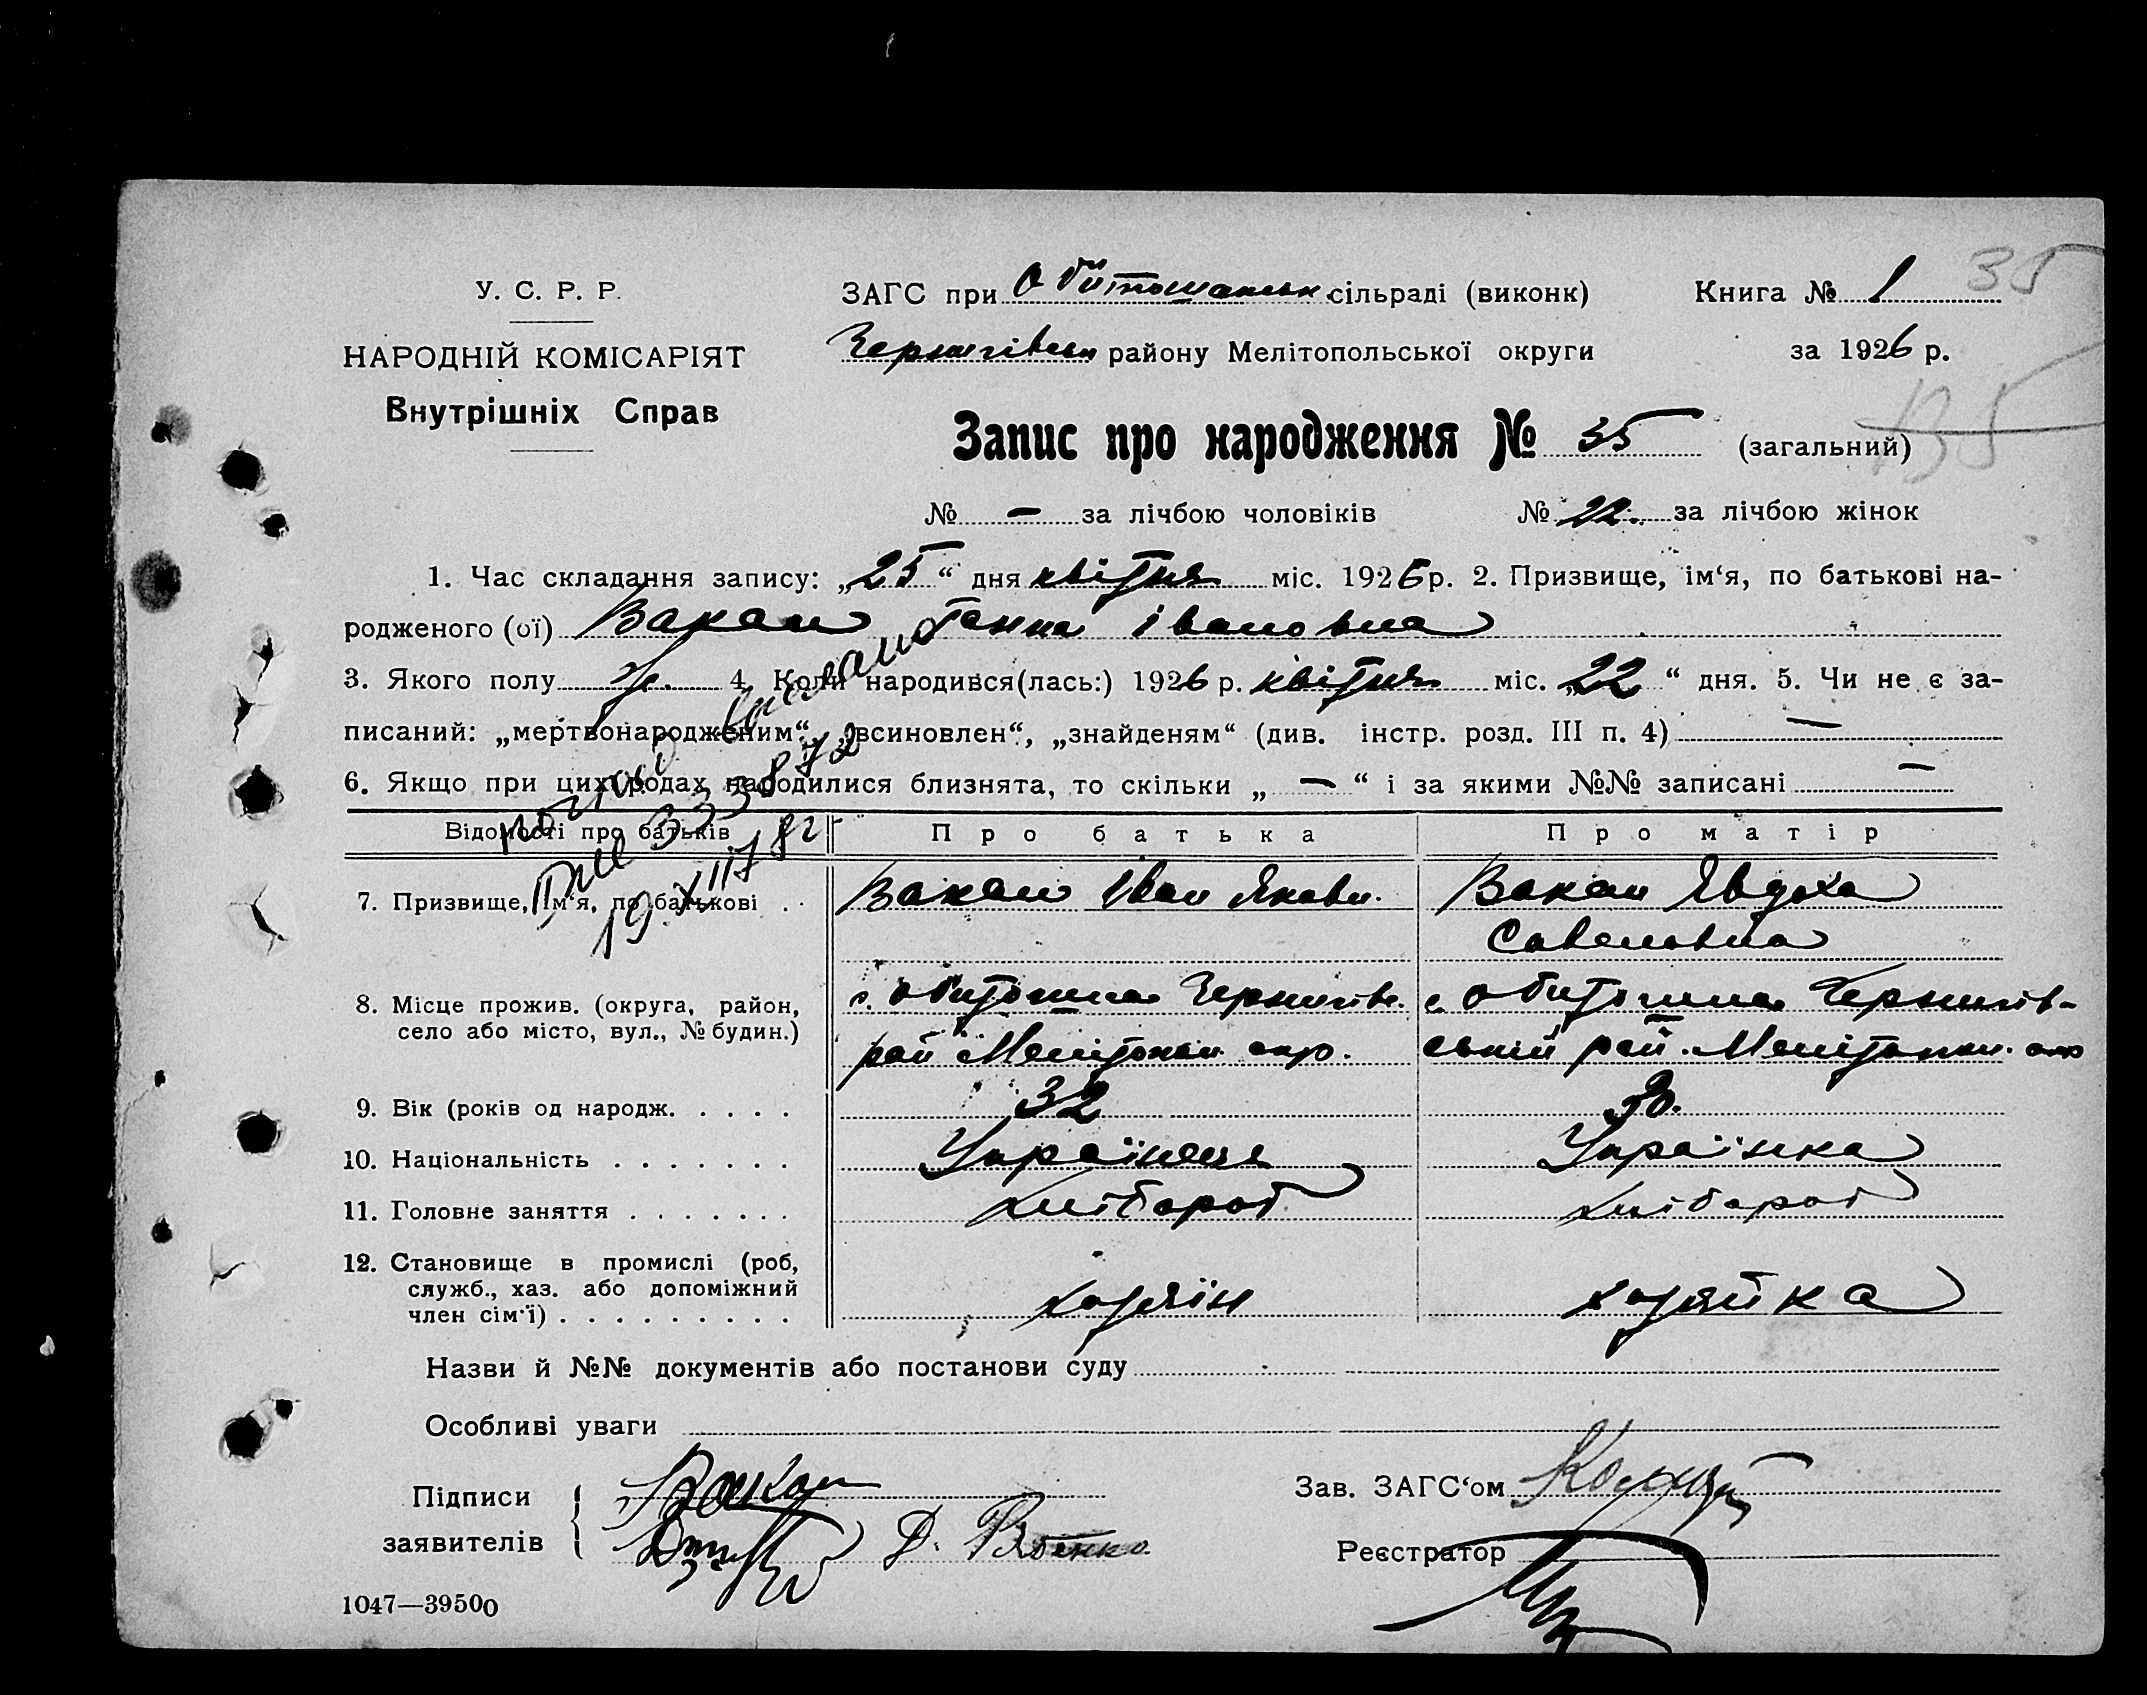 У. С. Р. Р.
НАРОДНІЙ КОМІСАРІЯТ
Внутрішніх Справ
ЗАГС при сільраді (виконк)
району Мелітопольської округи
Книга № 1
35
за 1926 р.
Запис про народження № 35 (загальний)
№ — за лічбою чоловіків № 22. за лічбою жінок
1. Час складання запису: „25“ дня квітня міс. 1926 р. 2. Призвище, ім‘я, по батькові на-
родженого (ої) Вакал Ганна Івановна
3. Якого полу ж. 4. Коли народився(лась:) 1926 р. квітня міс. „22“ дня. 5. Чи не є за-
писаний: „мертвонародженим“, „всиновлен“, „знайденям“ (див. інстр. розд. III п. 4) —
6. Якщо при цих родах народилися близнята, то скільки „ — “ і за якими №№ записані —
Відомості про батьків Про батька Про матір
7. Призвище, ім‘я, по батькові . . Вакал Іван Яковл. Вакал Явдоха
Савеловна
8. Місце прожив. (округа, район,
село або місто, вул., № будин.)
с. Обиточна Чернигівс. с. Обиточна Чернигів-
рай Мелітопол. окр. ський рай. Мелітопол. окр
9. Вік (років од народж. . . . . 32 30.
10. Національність . . . . . . . Українець Українка
11. Головне заняття . . . . . . . Хлібороб Хлібороб
12. Становище в промислі (роб,
служб., хаз. або допоміжний
член сім‘ї) . . . . . . . . . хозяїн хозяйка
Назви й №№ документів або постанови суду
Особливі уваги
Підписи
заявителів
Вакал
Д. Рябенко
Зав. ЗАГС‘ом
Реєстратор
1047—39500